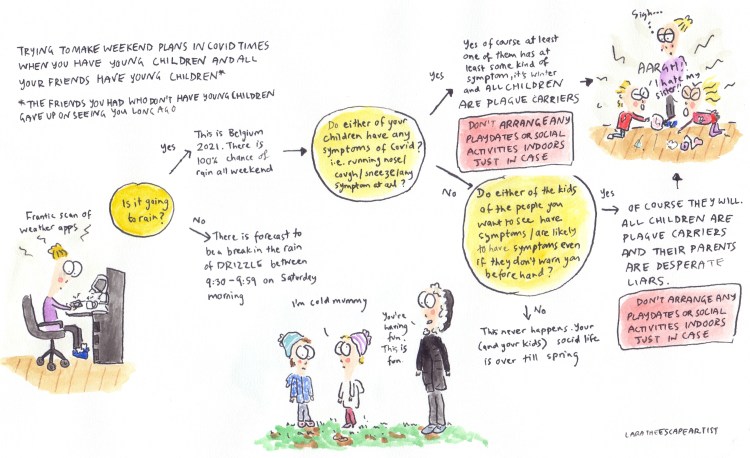 TRYING TO MAKE WEEKEND PLANS IN COVID TIMES
WHEN YOU HAVE YOUNG CHILDREN AND ALL
YOUR FRIENDS HAVE YOUNG CHILDREN*
*THE FRIENDS YOU HAD WHO DON'T HAVE YOUNG CHILDREN
GAVE UP ON SEEING YOU LONG AGO
Frantic scan of
weather apps
Is it going
to rain?
Yes
This is Belgium
2021. There is
100% chance of
rain all weekend
No
There is forecast to
be a break in the rain
of DRIZZLE between
9:30-9:59 on Saturday
morning
I'm cold mummy
You're
having
fun.
This is
fun.
Do either of your
children have any
symptoms of Covid?
i.e. running nose/
cough/sneeze/any
symptom at all?
Yes
Yes of course at least
one of them has at
least some kind of
symptom, it's winter
and ALL CHILDREN
ARE PLAGUE CARRIERS
DON'T ARRANGE ANY
PLAYDATES OR SOCIAL
ACTIVITIES INDOORS
JUST IN CASE
Sigh...
AARGH!
I hate my
sister!!
No
Do either of the kids
of the people you
want to see have
symptoms/are likely
to have symptoms even
if they don't warn you
beforehand?
Yes
OF COURSE THEY WILL.
ALL CHILDREN ARE
PLAGUE CARRIERS
AND THEIR PARENTS
ARE DESPERATE
LIARS.
DON'T ARRANGE ANY
PLAYDATES OR SOCIAL
ACTIVITIES INDOORS
JUST IN CASE
No
This never happens. Your
(and your kids) social life
is over till spring
LARATHEESCAPEARTIST